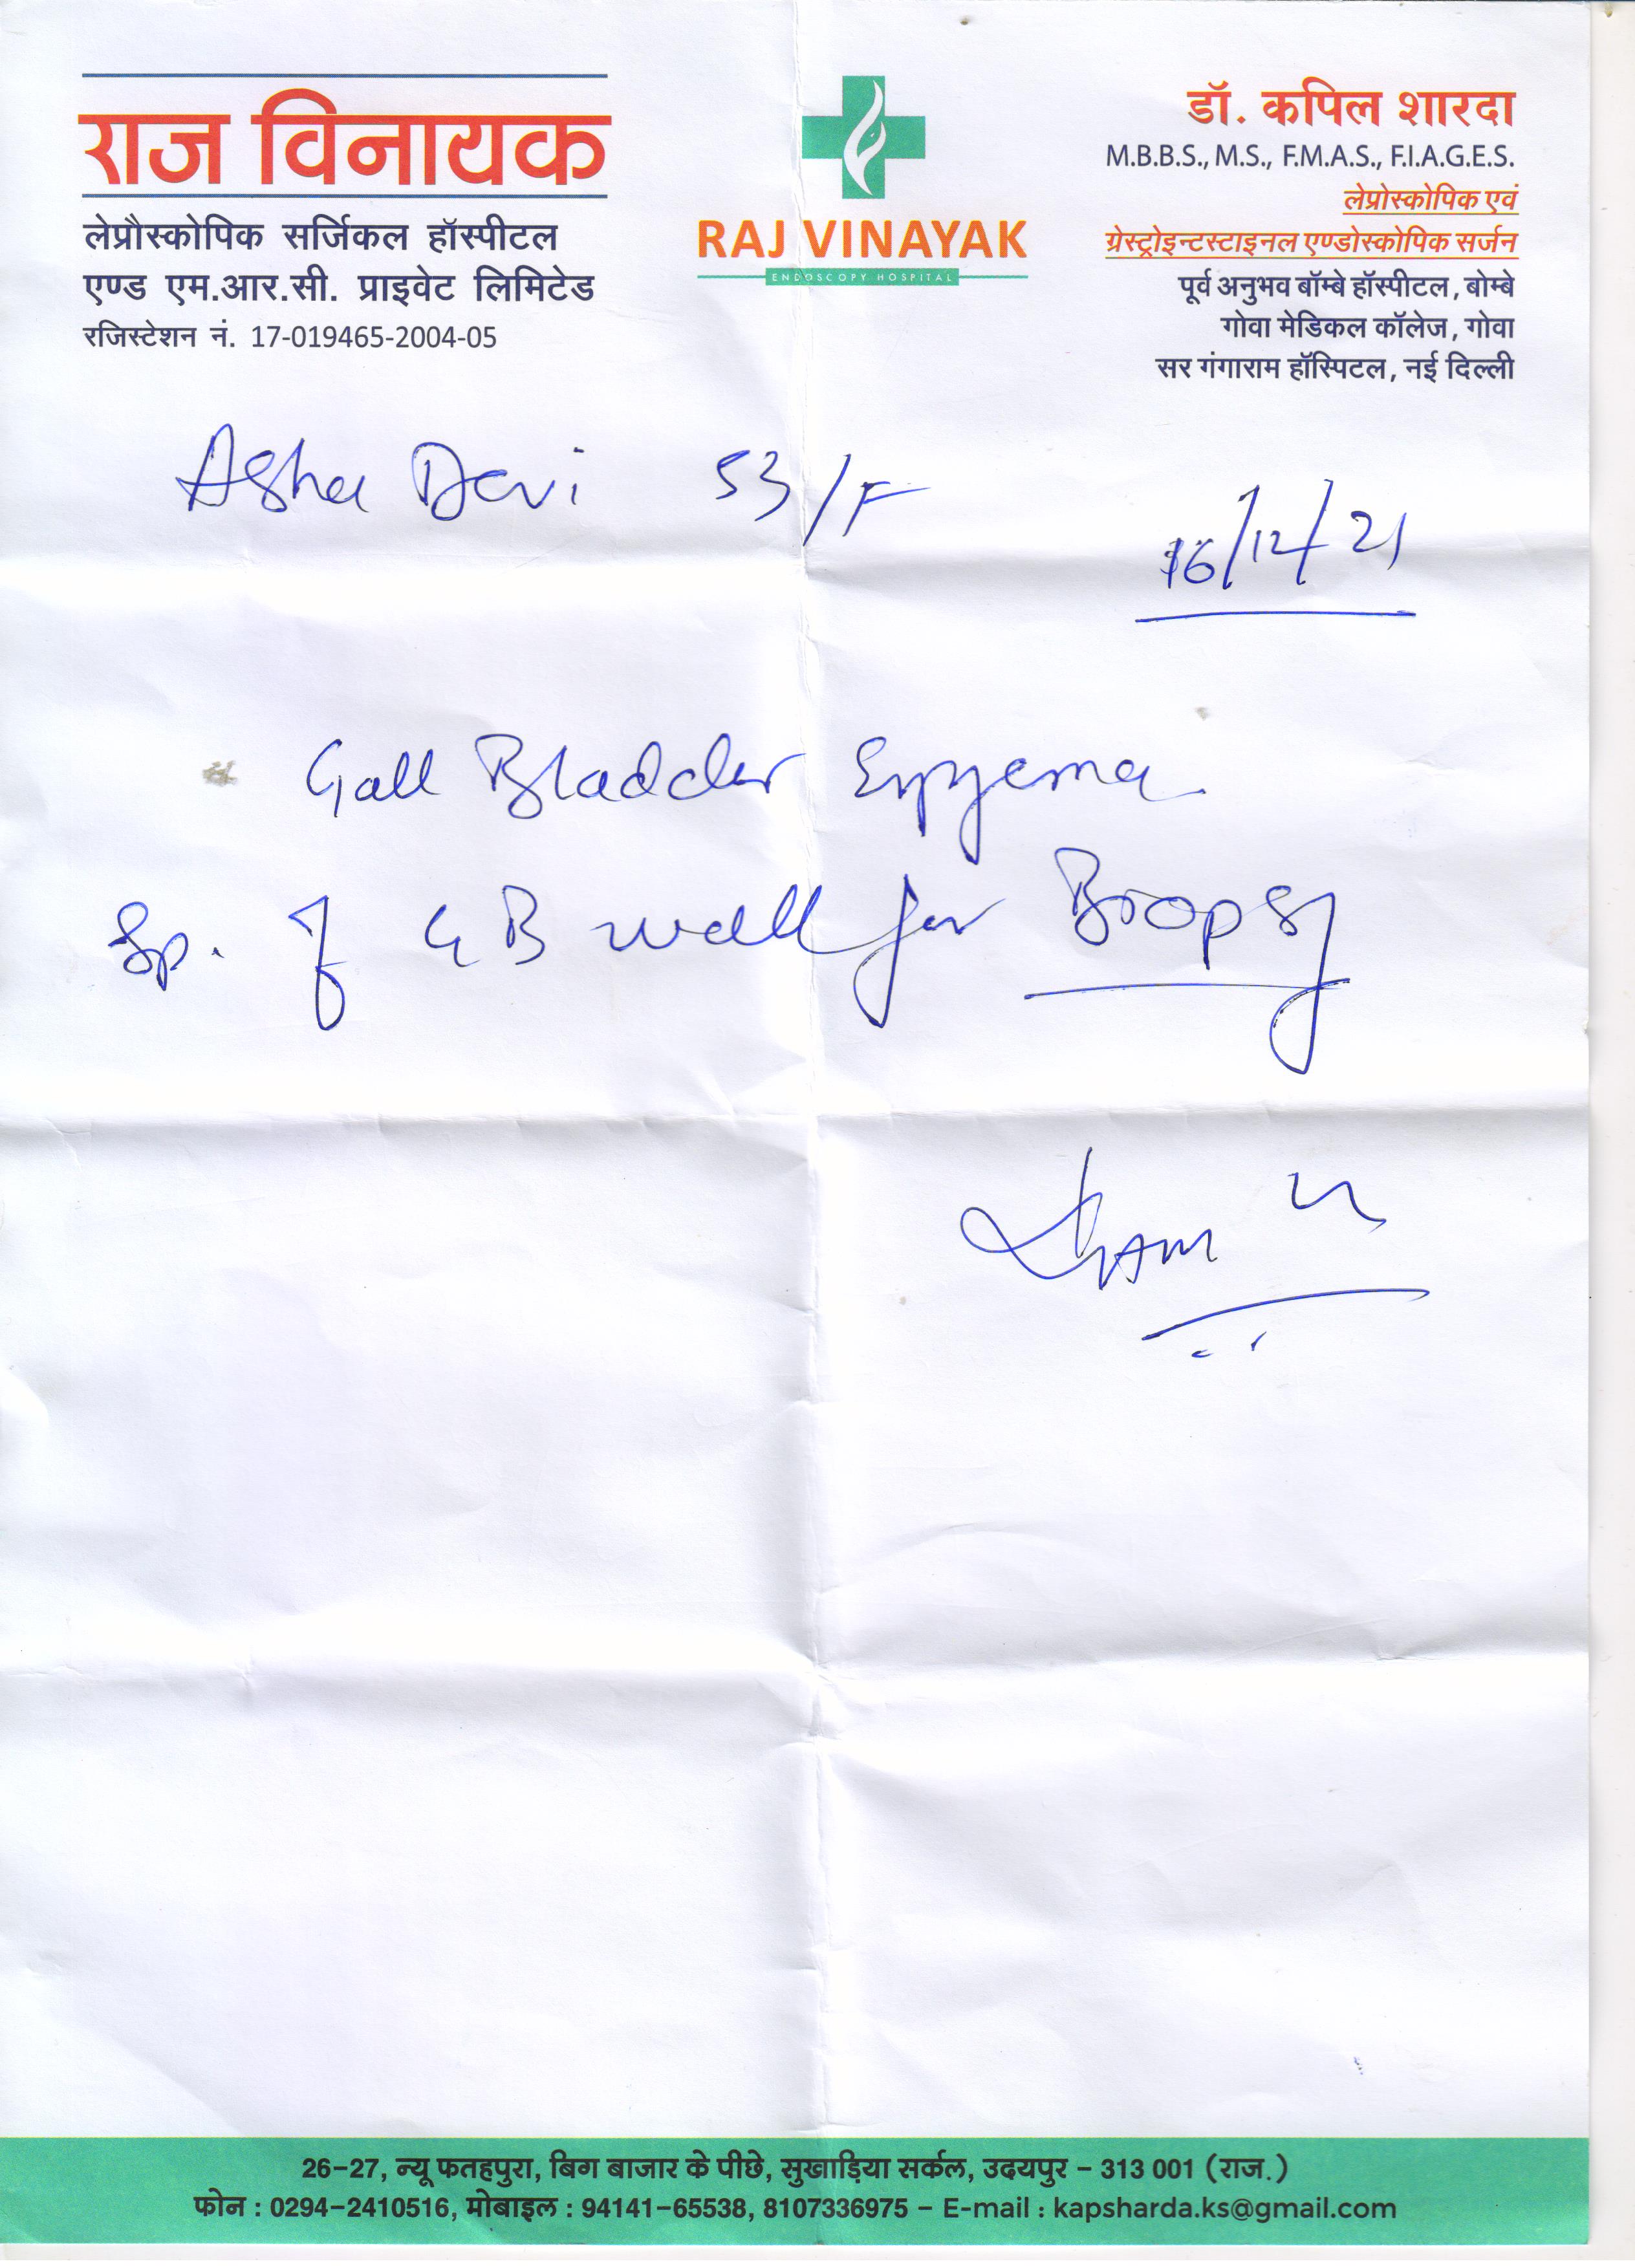 राज विनायक
लेप्रौस्कोपिक सर्जिकल हॉस्पीटल
एण्ड एम.आर.सी. प्राइवेट लिमिटेड
रजिस्टेशन नं. 17-019465-2004-05
RAJ VINAYAK
ENDOSCOPY HOSPITAL
डॉ. कपिल शारदा
M.B.B.S., M.S., F.M.A.S., F.I.A.G.E.S.
लेप्रोस्कोपिक एवं
ग्रेस्ट्रोइन्टस्टाइनल एण्डोस्कोपिक सर्जन
पूर्व अनुभव बॉम्बे हॉस्पीटल, बोम्बे
गोवा मेडिकल कॉलेज, गोवा
सर गंगाराम हॉस्पिटल, नई दिल्ली
Asha Devi 53/F
16/12/21
Gall Bladder Empyema
Sp. of GB wall for Biopsy
26-27, न्यू फतहपुरा, बिग बाजार के पीछे, सुखाड़िया सर्कल, उदयपुर - 313 001 (राज.)
फोन : 0294-2410516, मोबाइल : 94141-65538, 8107336975 - E-mail : kapsharda.ks@gmail.com